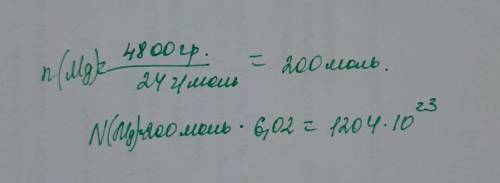 n(Mg)= 4800гр. / 24 г/моль = 200 моль.
N(Mg)=200 моль · 6,02 = 1204 · 10²³